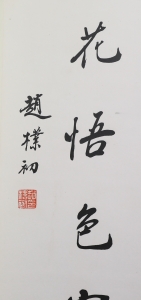 花悟色
趙樸初